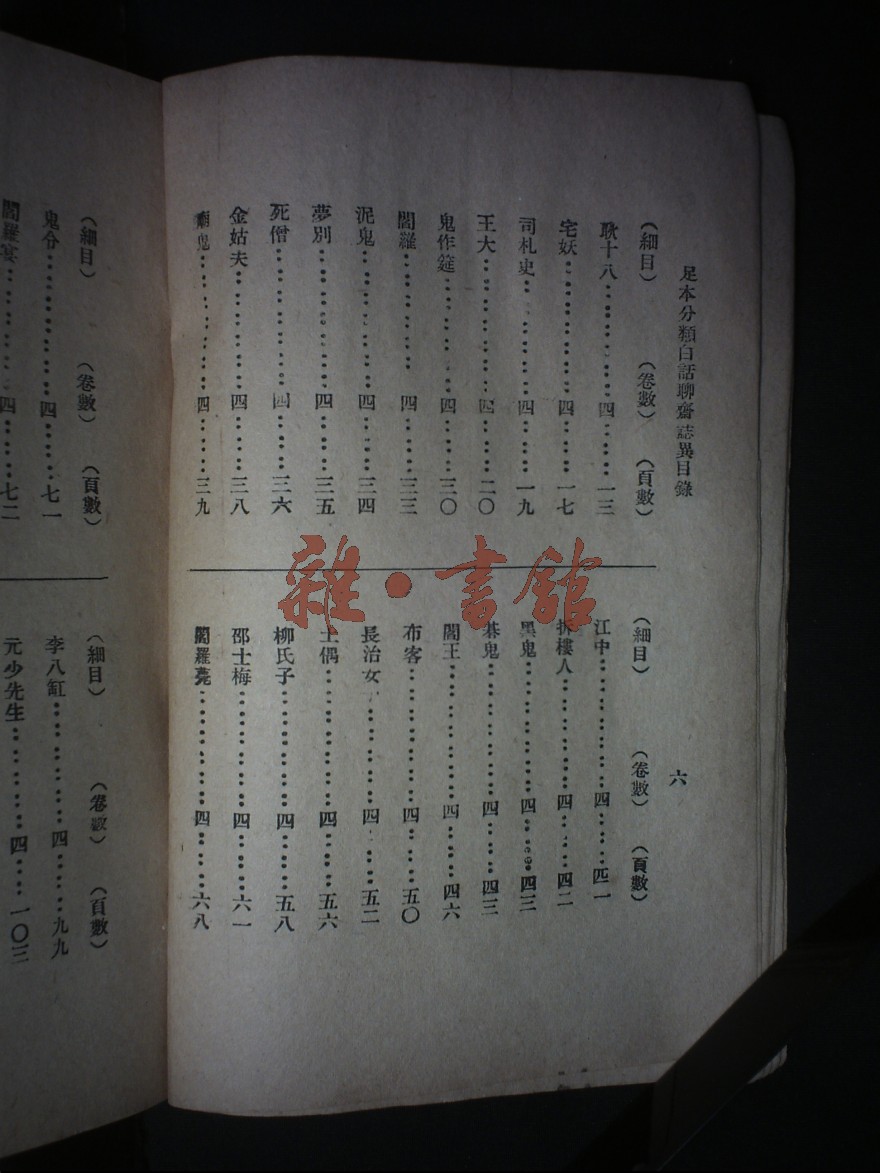 足本分類白話聊齋誌異目錄
六
（細目）　（卷數）　（頁數）
耿十八………………四……一三
宅妖………………四……一七
司札史………………四……一九
王大………………四……二〇
鬼作筵………………四……三〇
閻羅………………四……三三
泥鬼………………四……三四
夢別………………四……三五
死僧………………四……三六
金姑夫………………四……三八
廟鬼………………四……三九
（細目）　（卷數）　（頁數）
江中………………四……四一
拆樓人………………四……四二
黑鬼………………四……四三
棊鬼………………四……四三
閻王………………四……四六
布客………………四……五〇
長治女………………四……五二
土偶………………四……五六
柳氏子………………四……五八
邵士梅………………四……六一
閻羅薨………………四……六八
（細目）　（卷數）　（頁數）
鬼令………………四……七一
閻羅宴………………四……七二
（細目）　（卷數）　（頁數）
李八缸………………四……九九
元少先生………………四……一〇三
雜·書館